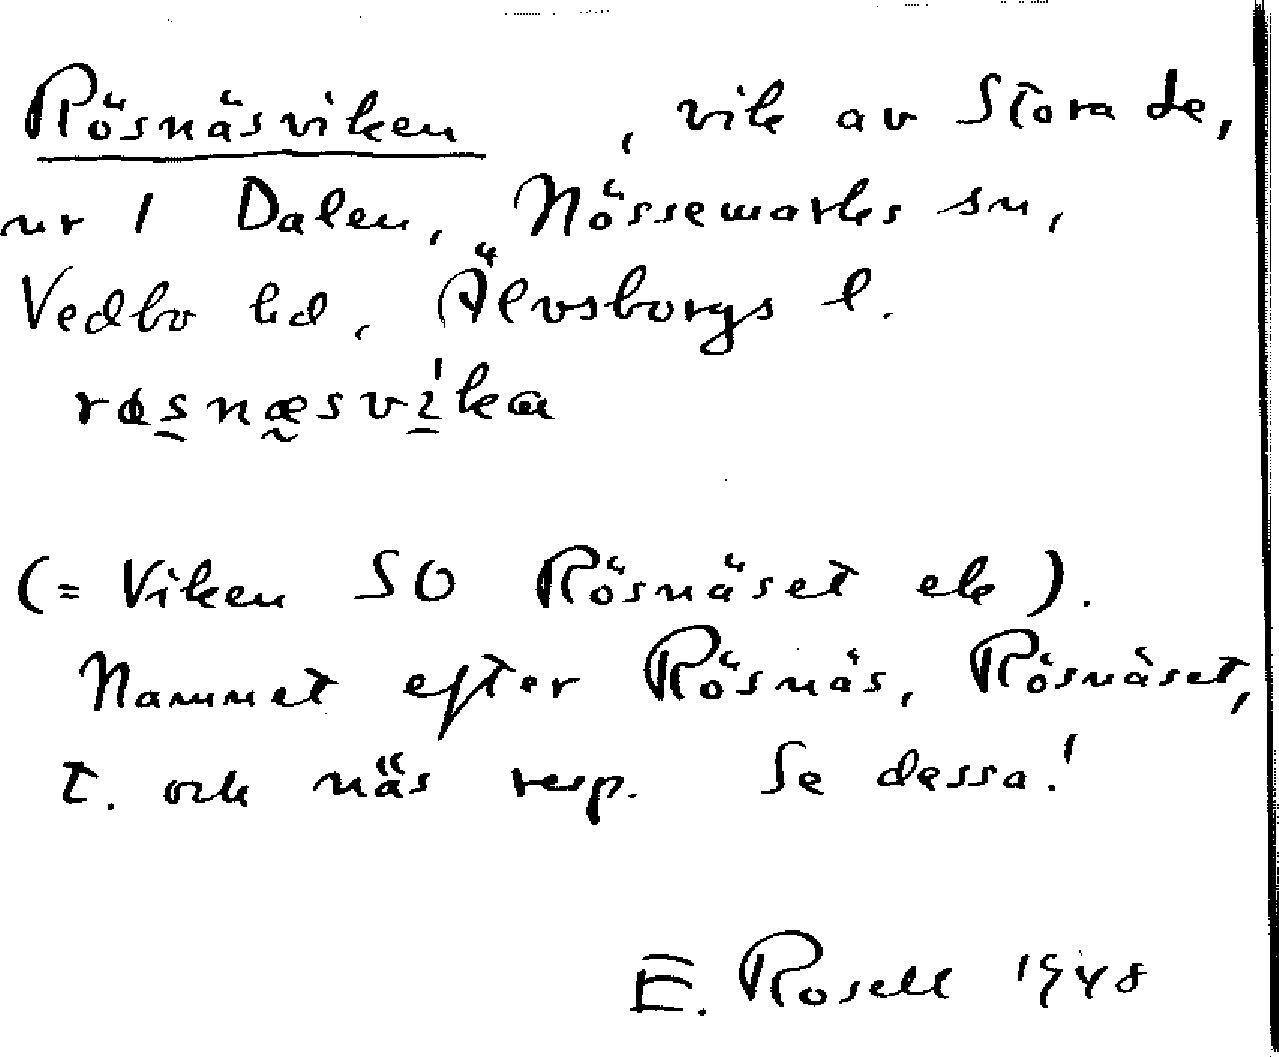 Rösnäsviken, vik av Stora Le,
nr 1 Dalen, Nössemarks sn,
Vedbo hd, Älvsborgs l.
(= Viken SO Rösnäset ek).
Namnet efter Rösnäs, Rösnäset,
t. och näs resp. Se dessa!
E. Rosell 1948